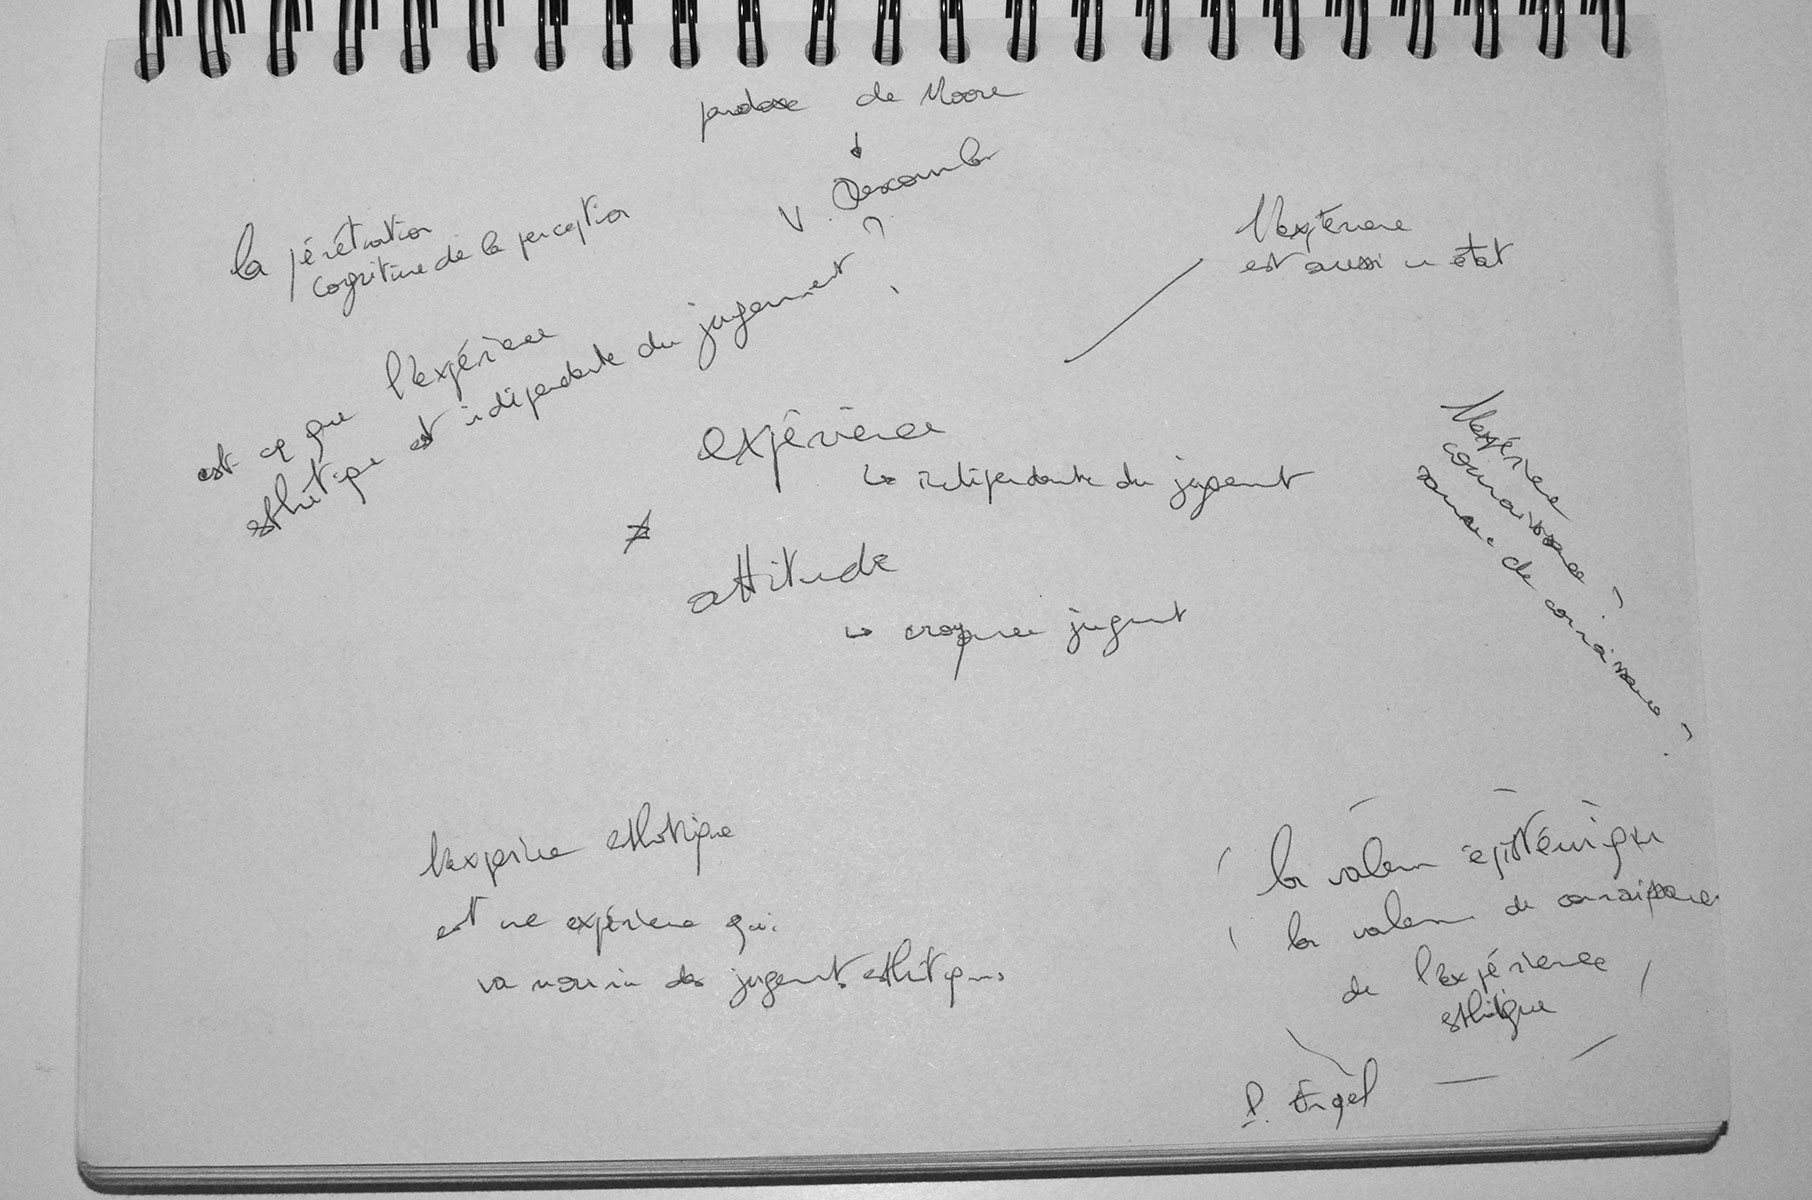 paradoxe de Moore
↓
V. Descombes
la pénétration
cognitive de la perception
est-ce que l'expérience
esthétique est indépendante du jugement ?
L'expérience
est aussi un état
expérience
↳ indépendante du jugement
≠
attitude
↳ croyance jugement
L'expérience
connaissance ?
source de connaissance ?
l'expérience esthétique
est une expérience qui
va nourrir des jugements esthétiques
la valeur épistémique
la valeur de connaissance
de l'expérience
esthétique
P. Engel